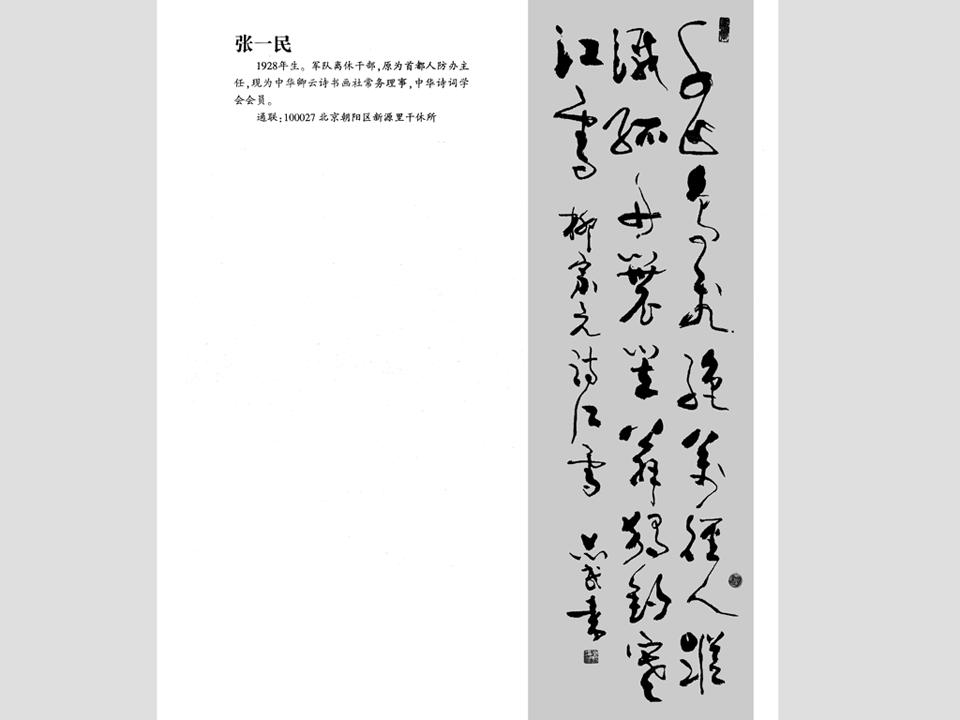 张一民
1928年生。军队离休干部,原为首都人防办主
任,现为中华卿云诗书画社常务理事,中华诗词学
会会员。
通联:100027 北京朝阳区新源里干休所
千山鳥飛絕萬徑人蹤
滅孤舟蓑笠翁獨釣寒
江雪 柳宗元詩江雪